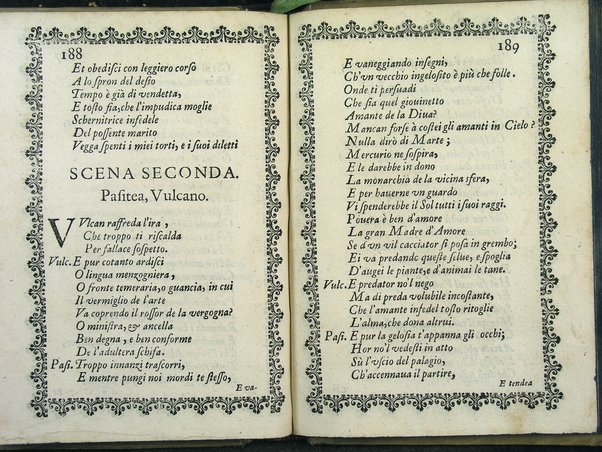 188
Et obedisci con leggiero corso
A lo spron del desio
Tempo è già di vendetta,
E tosto fia, che l'impudica moglie
Schernitrice infedele
Del possente marito
Vegga spenti i miei torti, e i suoi diletti
SCENA SECONDA.
Pasitea, Vulcano.
VVlcan raffreda l'ira,
Che troppo ti riscalda
Per fallace sospetto.
Vulc. E pur cotanto ardisci
O lingua menzogniera,
O fronte temeraria, o guancia, in cui
Il vermiglio de l'arte
Va coprendo il rossor de la vergogna?
O ministra, & ancella
Ben degna, e ben conforme
De l'adultera schifa.
Pasi. Troppo innanzi trascorri,
E mentre pungi noi mordi te stesso,
E va-
189
E vaneggiando insegni,
Ch'vn vecchio ingelosito è più che folle.
Onde ti persuadi
Che sia quel giouinetto
Amante de la Diua?
Mancan forse à costei gli amanti in Cielo?
Nulla dirò di Marte;
Mercurio ne sospira,
E le darebbe in dono
La monarchia de la vicina sfera,
E per hauerne un guardo
Vi spenderebbe il Sol tutti i suoi raggi.
Pouera è ben d'amore
La gran Madre d'Amore
Se d'un vil cacciator si posa in grembo;
Ei va predando queste selue, e spoglia
D'augei le piante, e d'animai le tane.
Vulc. E predator no'l nego
Ma di preda volubile incostante,
Che l'amante infedel tosto ritoglie
L'alma, che dona altrui.
Pasi. E pur la gelosia t'appanna gli occhi;
Hor no'l vedesti in atto
Sù l'vscio del palagio,
Ch'accennaua il partire,
E tendea